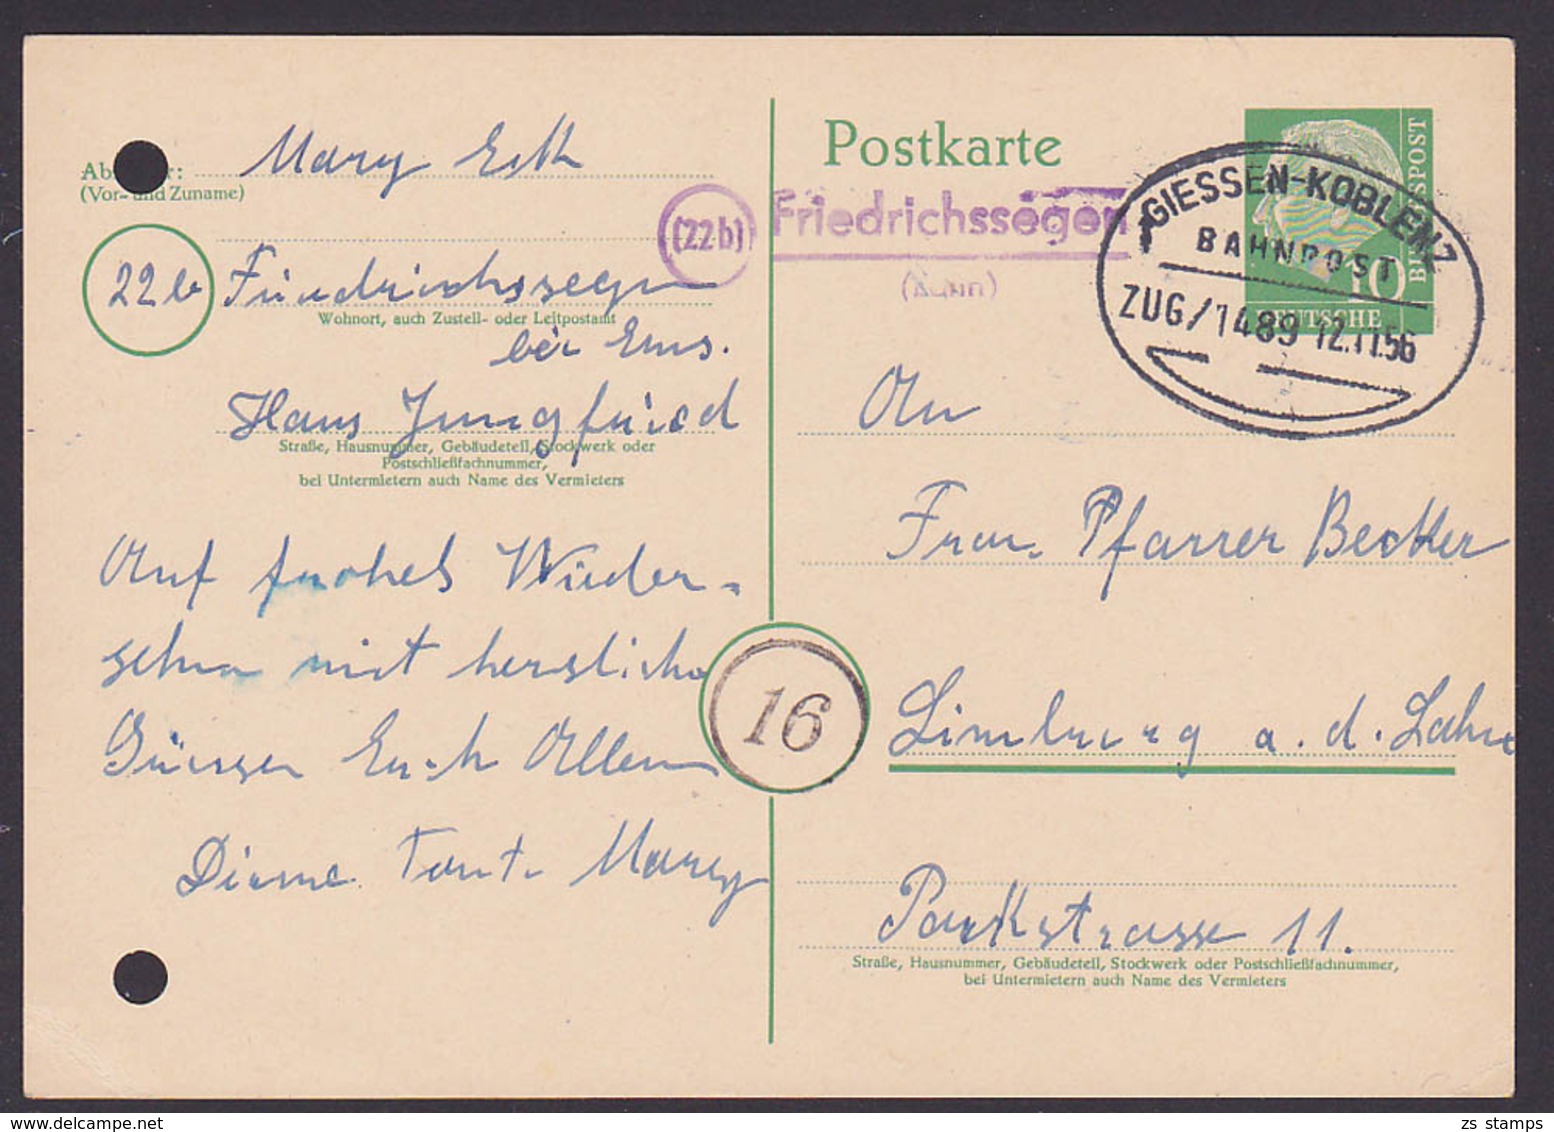 Mary Eck
(Vor- und Zuname)
22b Friedrichssegen
Wohnort, auch Zustell- oder Leitpostamt
bei Ems.
Hans Jungfried
Straße, Hausnummer, Gebäudeteil, Stockwerk oder
Postschließfachnummer,
bei Untermietern auch Name des Vermieters
Auf frohes Wieder-
sehn mit herzliche
Grüsse Euch Allen
Deine Tante Mary
Postkarte
(22b) Friedrichssegen
(Lahn)
GIESSEN-KOBLENZ
BAHNPOST
ZUG/1489 12.11.56
10
DEUTSCHE
BUNDESPOST
16
An
Frau Pfarrer Becker
Limburg a. d. Lahn
Parkstrasse 11.
Straße, Hausnummer, Gebäudeteil, Stockwerk oder Postschließfachnummer,
bei Untermietern auch Name des Vermieters
zs stamps